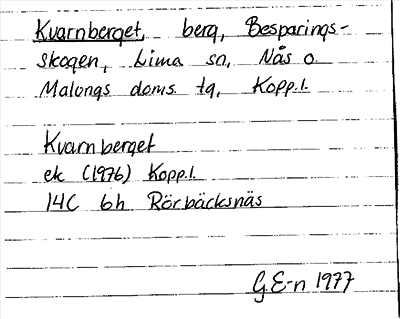 Kvarnberget, berg, Besparings-
skogen, Lima sn, Nås o
Malungs doms. tg, Kopp.l.
Kvarnberget
ek (1976) Kopp.l.
14C 6h Rörbäcksnäs
G.E-n 1977